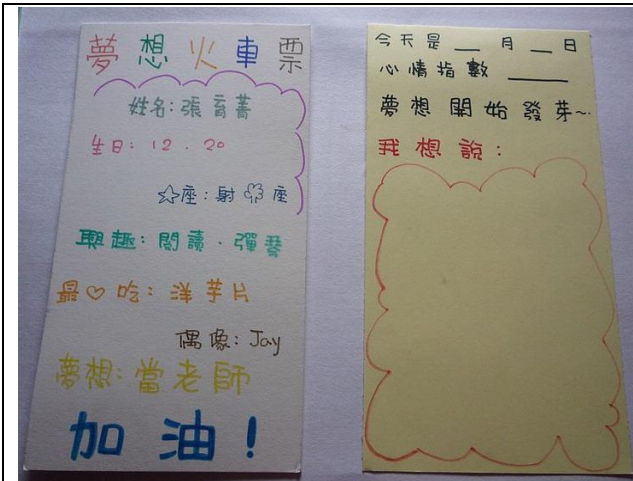 夢想火車票
姓名:張育菁
生日:12.20
☆座:射手座
興趣:閱讀.彈琴
最♡吃:洋芋片
偶像:Jay
夢想:當老師
加油!
今天是__月__日
心情指數____
夢想開始發芽~
我想說: